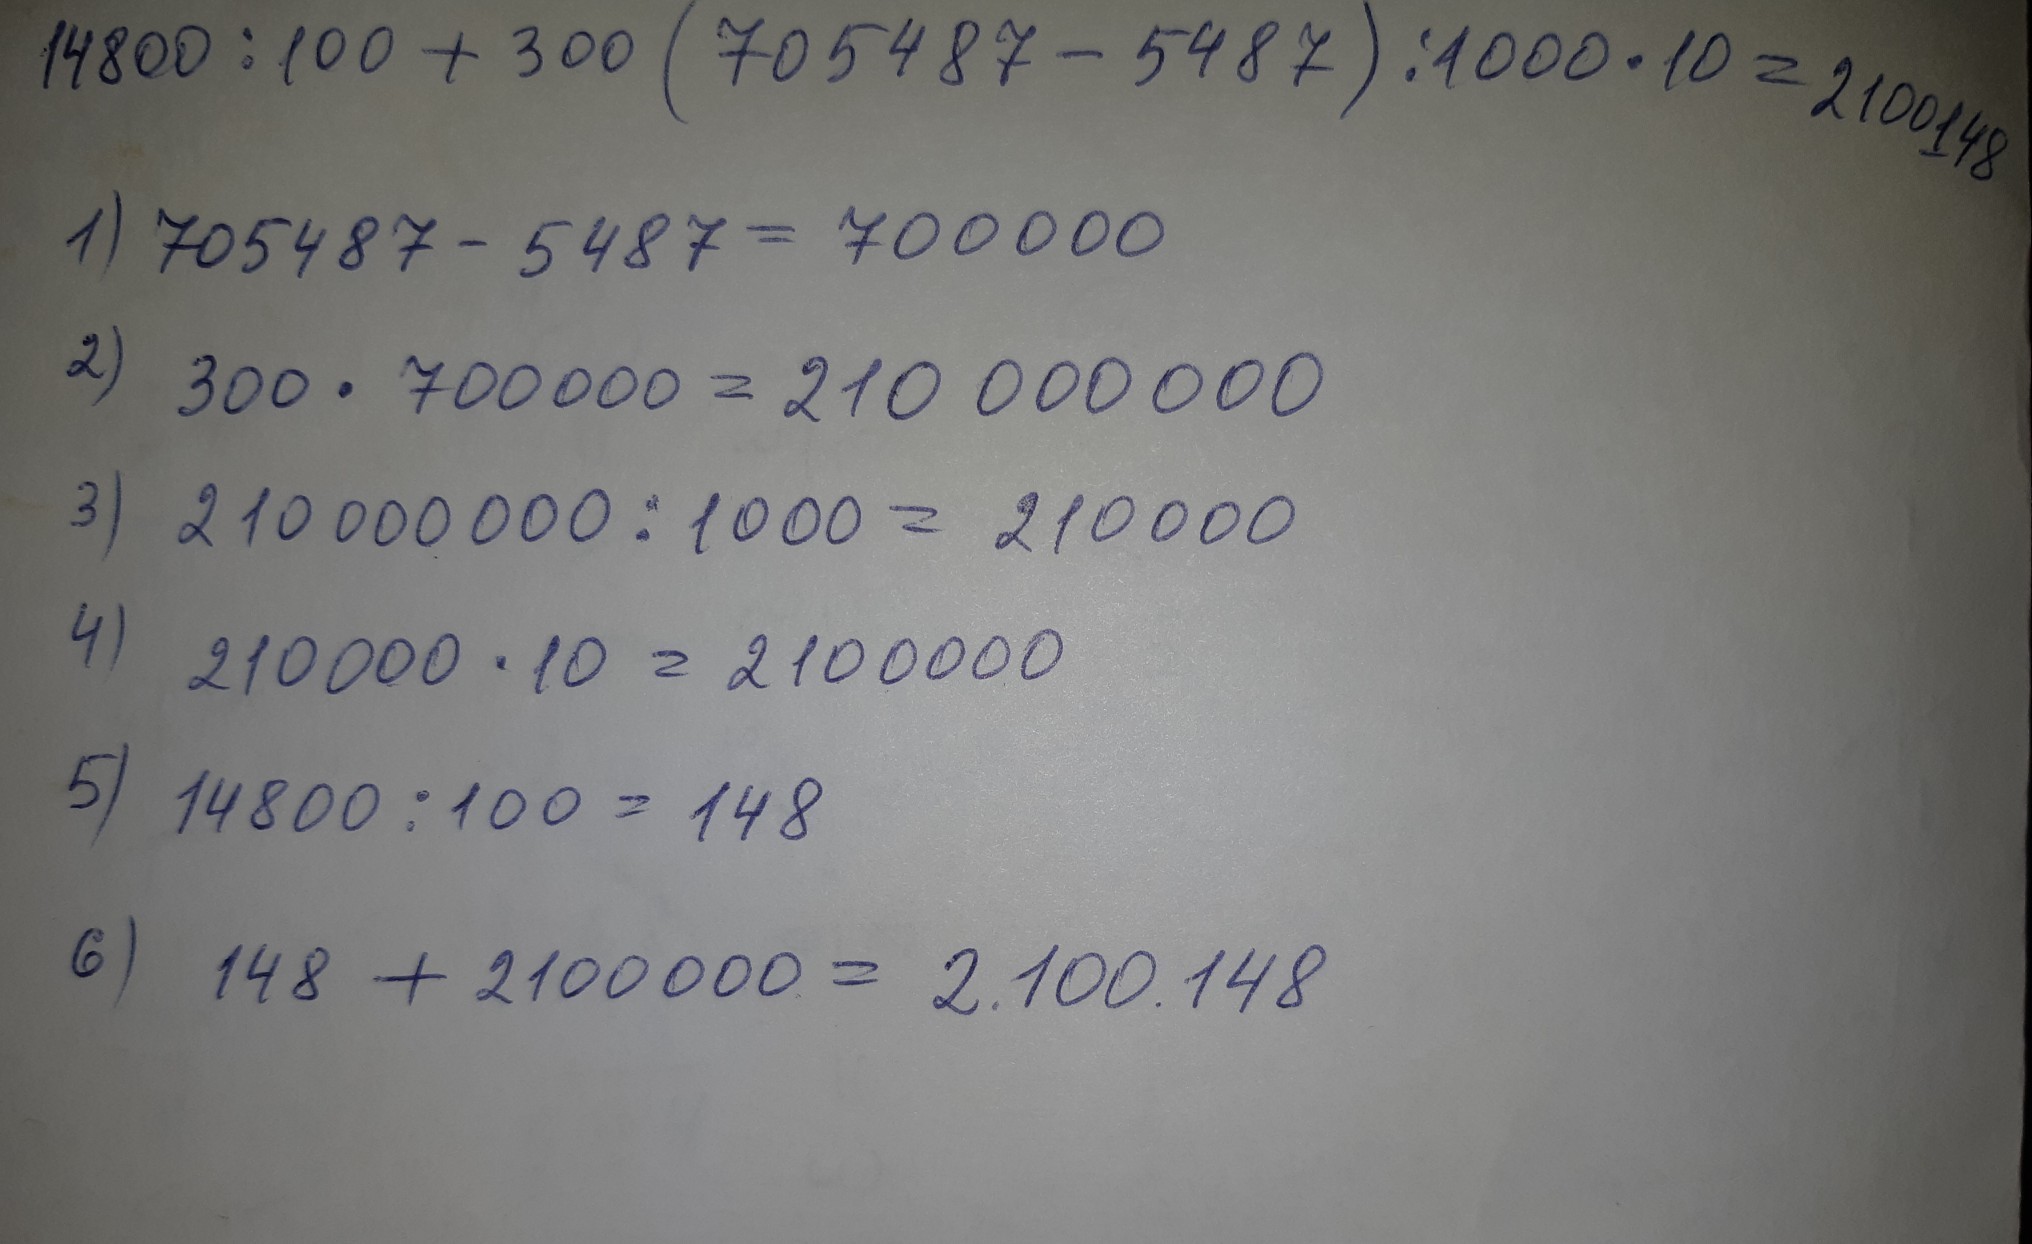 14800 : 100 + 300 (705487 - 5487) : 1000 · 10 = 2100148
1) 705487 - 5487 = 700000
2) 300 · 700000 = 210 000000
3) 210000000 : 1000 = 210000
4) 210000 · 10 = 2100000
5) 14800 : 100 = 148
6) 148 + 2100000 = 2.100.148